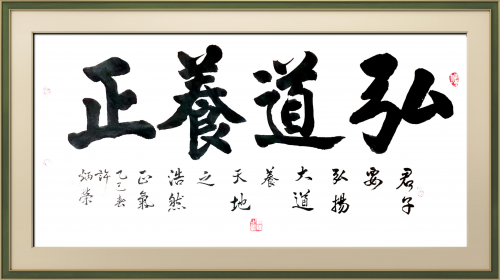 弘道養正
君子
要
弘揚
大道
養
天地
之
浩然
正氣
乙巳春
許
炳榮